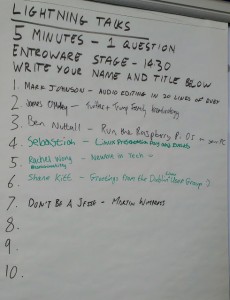 LIGHTNING TALKS
5 MINUTES - 1 QUESTION
ENTROWARE STAGE - 1430
WRITE YOUR NAME AND TITLE BELOW
1. MARK JOHNSON - AUDIO EDITING IN 20 LINES OF
2. James O'Malley - Twitter + Trump Family
3. Ben Nuttall - Run the Raspberry Pi OS on your PC
4. Sebastian - Linux Presentation Day
5. Rachel Wong - Newbie in Tech
6. Shane - Greetings from the Dublin Group :)
7. DON'T BE A - MARTIN WIMPRESS
8.
9.
10.